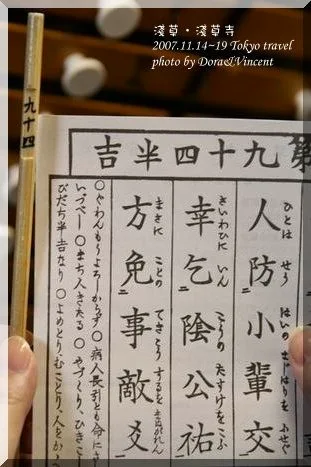 淺草・淺草寺
2007.11.14~19 Tokyo travel
photo by Dora&Vincent
九十四
第九十四半吉
人防小輩交
ひとは せう はいの まじはりを ふせぐ
幸乞陰公祐
さいわひに いん こうの たすけをこふ
方免事敵爻
まさに ことの てきこう するを まぬがれん
○ぐわんもうよろしからず○病人長引とも命にさ
いづべし○まち人きたる○やづくり、ひきこし
びだち半吉なり○よめとり、むことり、人をか